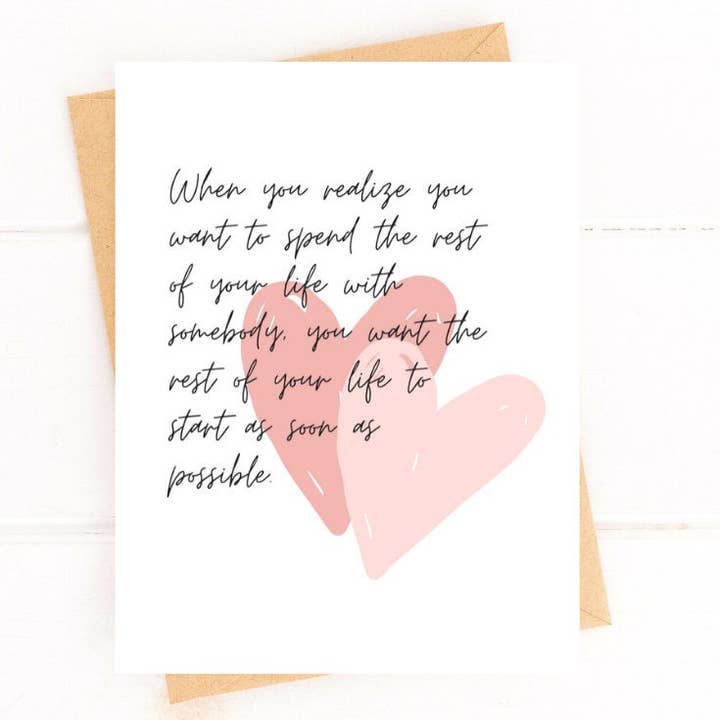 When you realize you
want to spend the rest
of your life with
somebody, you want the
rest of your life to
start as soon as
possible.